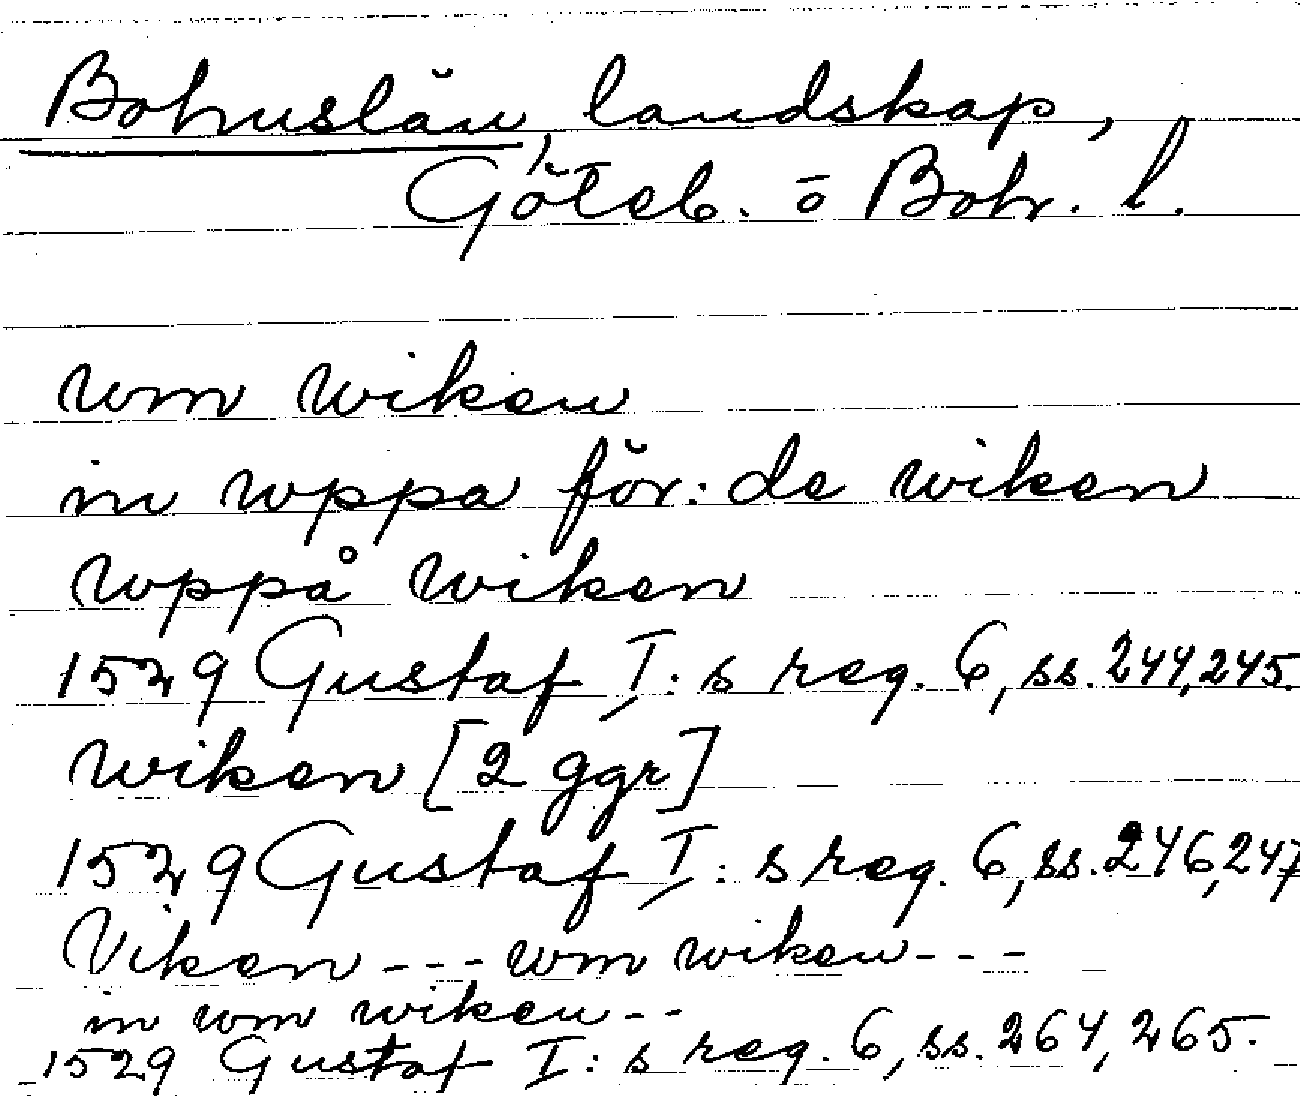 Bohuslän, landskap,
Göteb. o Boh. l.
wm wiken
in wppa för: de wiken
wppå wiken
1529 Gustaf I:s reg. 6, ss. 244, 245.
wiken [2 ggr]
1529 Gustaf I:s reg. 6, ss. 246, 247
Viken --- wm wiken ---
in wm wiken --
1529 Gustaf I:s reg. 6, ss. 264, 265.